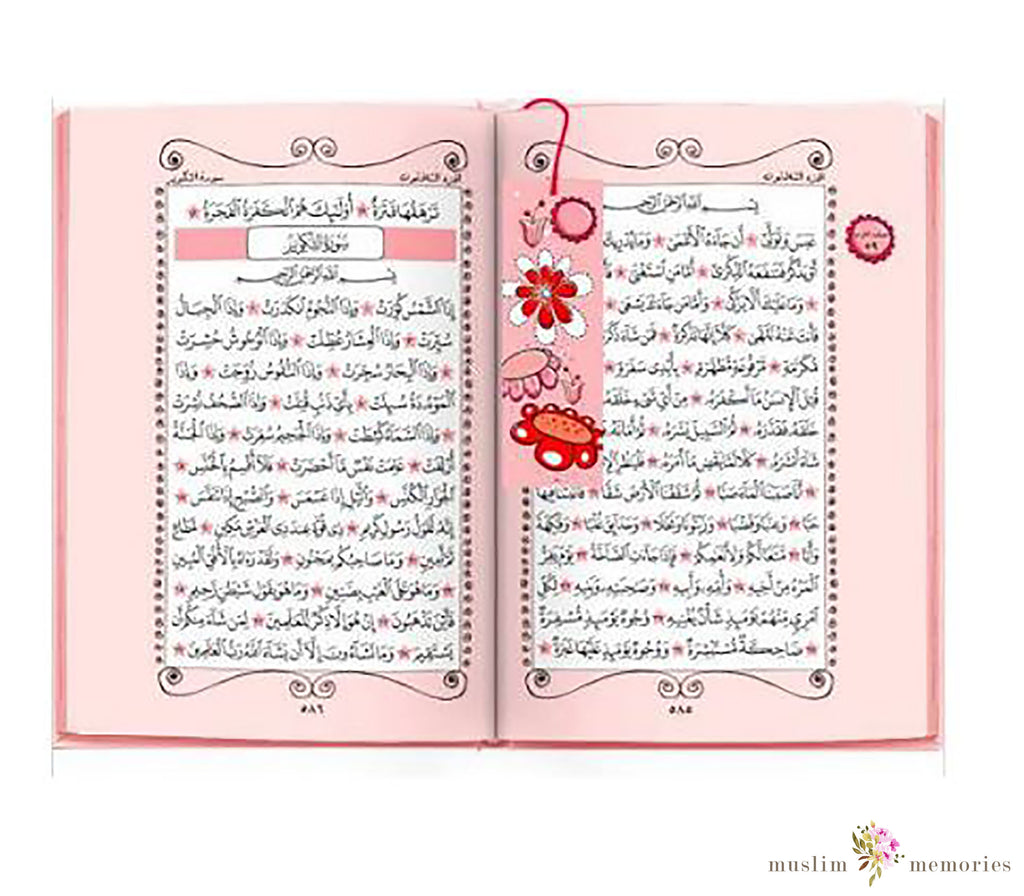 الجزء الثلاثون
بِسْمِ ٱللَّهِ ٱلرَّحْمَٰنِ ٱلرَّحِيمِ
عَبَسَ وَتَوَلَّىٰٓ أَن جَآءَهُ ٱلْأَعْمَىٰ وَمَا يُدْرِيكَ
أَوْ يَذَّكَّرُ فَتَنفَعَهُ ٱلذِّكْرَىٰٓ أَمَّا مَنِ ٱسْتَغْنَىٰ
وَمَا عَلَيْكَ أَلَّا يَزَّكَّىٰ وَأَمَّا مَن جَآءَكَ يَسْعَىٰ
فَأَنتَ عَنْهُ تَلَهَّىٰ كَلَّآ إِنَّهَا تَذْكِرَةٌ فَمَن شَآءَ ذَكَرَهُ
مُّكَرَّمَةٍ مَّرْفُوعَةٍ مُّطَهَّرَةٍ بِأَيْدِى سَفَرَةٍ
قُتِلَ ٱلْإِنسَٰنُ مَآ أَكْفَرَهُ مِنْ أَىِّ شَىْءٍ خَلَقَهُ
خَلَقَهُ فَقَدَّرَهُ ثُمَّ ٱلسَّبِيلَ يَسَّرَهُ ثُمَّ أَمَاتَهُ
شَآءَ أَنشَرَهُ كَلَّا لَمَّا يَقْضِ مَآ أَمَرَهُ فَلْيَنظُرِ
أَنَّا صَبَبْنَا ٱلْمَآءَ صَبًّا ثُمَّ شَقَقْنَا ٱلْأَرْضَ شَقًّا فَأَنۢبَتْنَا فِيهَا
حَبًّا وَعِنَبًا وَقَضْبًا وَزَيْتُونًا وَنَخْلًا وَحَدَآئِقَ غُلْبًا وَفَٰكِهَةً
وَأَبًّا مَّتَٰعًا لَّكُمْ وَلِأَنْعَٰمِكُمْ فَإِذَا جَآءَتِ ٱلصَّآخَّةُ يَوْمَ يَفِرُّ
ٱلْمَرْءُ مِنْ أَخِيهِ وَأُمِّهِ وَأَبِيهِ وَصَٰحِبَتِهِ وَبَنِيهِ لِكُلِّ
ٱمْرِئٍ مِّنْهُمْ يَوْمَئِذٍ شَأْنٌ يُغْنِيهِ وُجُوهٌ يَوْمَئِذٍ مُّسْفِرَةٌ
ضَاحِكَةٌ مُّسْتَبْشِرَةٌ وَوُجُوهٌ يَوْمَئِذٍ عَلَيْهَا غَبَرَةٌ
٥٨٥
٥٩
الجزء الثلاثون
سورة التكوير
تَرْهَقُهَا قَتَرَةٌ أُو۟لَٰٓئِكَ هُمُ ٱلْكَفَرَةُ ٱلْفَجَرَةُ
سُورَةُ التَّكْوِيرِ
بِسْمِ ٱللَّهِ ٱلرَّحْمَٰنِ ٱلرَّحِيمِ
إِذَا ٱلشَّمْسُ كُوِّرَتْ وَإِذَا ٱلنُّجُومُ ٱنكَدَرَتْ وَإِذَا ٱلْجِبَالُ
سُيِّرَتْ وَإِذَا ٱلْعِشَارُ عُطِّلَتْ وَإِذَا ٱلْوُحُوشُ حُشِرَتْ
وَإِذَا ٱلْبِحَارُ سُجِّرَتْ وَإِذَا ٱلنُّفُوسُ زُوِّجَتْ وَإِذَا
ٱلْمَوْءُۥدَةُ سُئِلَتْ بِأَىِّ ذَنۢبٍ قُتِلَتْ وَإِذَا ٱلصُّحُفُ نُشِرَتْ
وَإِذَا ٱلسَّمَآءُ كُشِطَتْ وَإِذَا ٱلْجَحِيمُ سُعِّرَتْ وَإِذَا ٱلْجَنَّةُ
أُزْلِفَتْ عَلِمَتْ نَفْسٌ مَّآ أَحْضَرَتْ فَلَآ أُقْسِمُ بِٱلْخُنَّسِ
ٱلْجَوَارِ ٱلْكُنَّسِ وَٱلَّيْلِ إِذَا عَسْعَسَ وَٱلصُّبْحِ إِذَا تَنَفَّسَ
إِنَّهُ لَقَوْلُ رَسُولٍ كَرِيمٍ ذِى قُوَّةٍ عِندَ ذِى ٱلْعَرْشِ مَكِينٍ مُّطَاعٍ
ثَمَّ أَمِينٍ وَمَا صَاحِبُكُم بِمَجْنُونٍ وَلَقَدْ رَءَاهُ بِٱلْأُفُقِ ٱلْمُبِينِ
وَمَا هُوَ عَلَى ٱلْغَيْبِ بِضَنِينٍ وَمَا هُوَ بِقَوْلِ شَيْطَٰنٍ رَّجِيمٍ
فَأَيْنَ تَذْهَبُونَ إِنْ هُوَ إِلَّا ذِكْرٌ لِّلْعَٰلَمِينَ لِمَن شَآءَ مِنكُمْ أَن
يَسْتَقِيمَ وَمَا تَشَآءُونَ إِلَّآ أَن يَشَآءَ ٱللَّهُ رَبُّ ٱلْعَٰلَمِينَ
٥٨٦
muslim memories